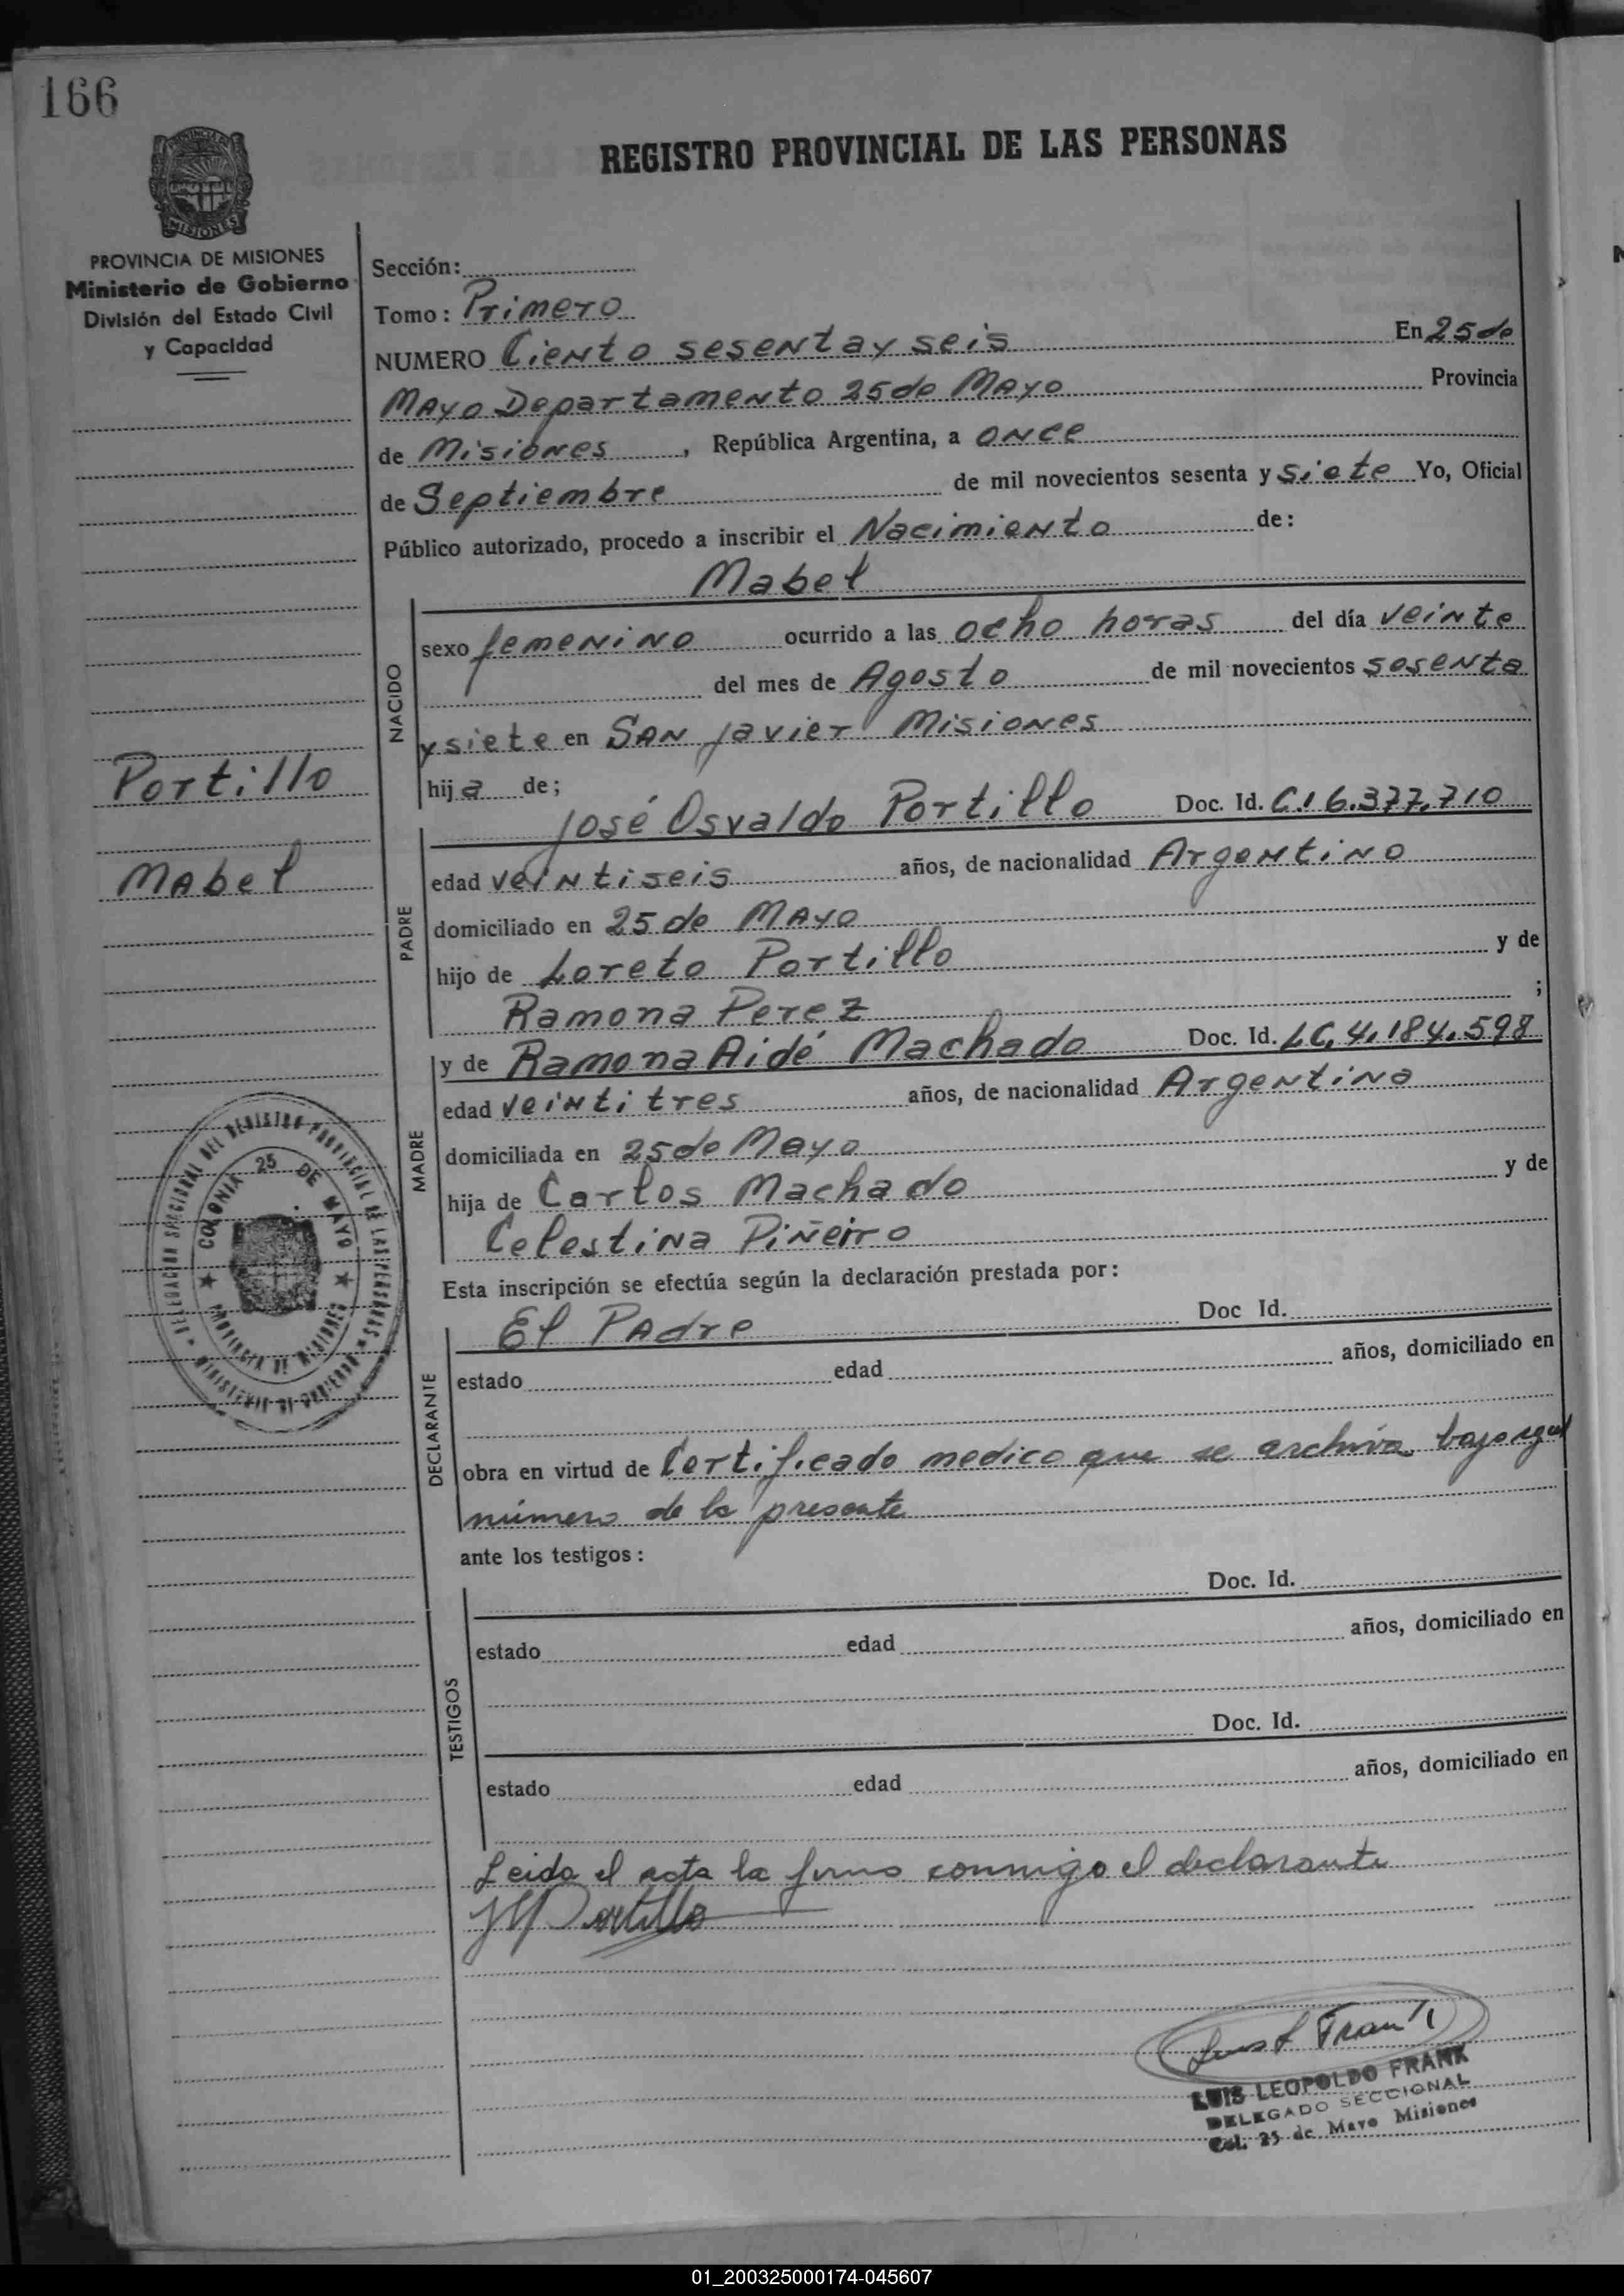 166
REGISTRO PROVINCIAL DE LAS PERSONAS
PROVINCIA DE MISIONES
Ministerio de Gobierno
División del Estado Civil
y Capacidad
Sección:
Tomo: Primero
NUMERO Ciento sesenta y seis En 25 de
Mayo Departamento 25 de Mayo Provincia
de Misiones, República Argentina, a once
de Septiembre de mil novecientos sesenta y siete Yo, Oficial
Público autorizado, procedo a inscribir el Nacimiento de:
Mabel
NACIDO
sexo femenino ocurrido a las ocho horas del día veinte
del mes de Agosto de mil novecientos sesenta
y siete en San Javier Misiones
hija de;
Portillo
Mabel
PADRE
José Osvaldo Portillo Doc. Id. C.I 6.377.710
edad veintiseis años, de nacionalidad Argentino
domiciliado en 25 de Mayo
hijo de Loreto Portillo y de
Ramona Perez ;
MADRE
y de Ramona Aidé Machado Doc. Id. LC, 4.184.598
edad veintitres años, de nacionalidad Argentina
domiciliada en 25 de Mayo
hija de Carlos Machado y de
Celestina Piñeiro
DELEGACION SECCIONAL DEL REGISTRO PROVINCIAL DE LAS PERSONAS
MINISTERIO DE GOBIERNO
COLONIA 25 DE MAYO
PROVINCIA DE MISIONES
Esta inscripción se efectúa según la declaración prestada por:
DECLARANTE
El Padre Doc Id.
estado edad años, domiciliado en
obra en virtud de Certificado medico que se archiva bajo igual
número de la presente
ante los testigos:
TESTIGOS
Doc. Id.
estado edad años, domiciliado en
Doc. Id.
estado edad años, domiciliado en
Leida el acta la firma conmigo el declarante
Portillo
Luis L Frank
LUIS LEOPOLDO FRANK
DELEGADO SECCIONAL
Col. 25 de Mayo Misiones
01_200325000174-045607